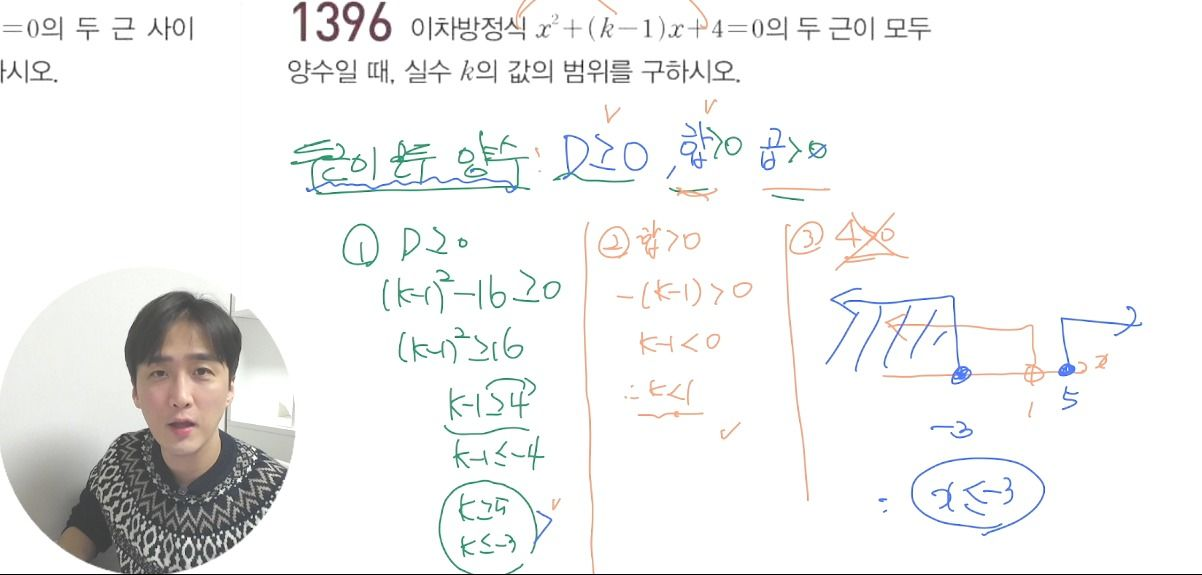 =0의 두 근 사이
하시오.
1396 이차방정식 x²+(k-1)x+4=0의 두 근이 모두
양수일 때, 실수 k의 값의 범위를 구하시오.
두근이 모두 양수 : D≥0, 합>0 곱>0
① D≥0
(k-1)²-16≥0
(k-1)²≥16
k-1≥4
k-1≤-4
k≥5
k≤-3
② 합>0
-(k-1)>0
k-1<0
∴k<1
③ 4>0
1 5
-3
: x≤-3